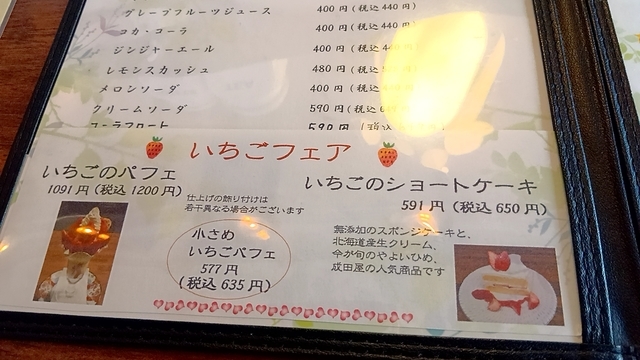 グレープフルーツジュース 400円(税込440円)
コカ・コーラ 400円(税込440円)
ジンジャーエール 400円(税込440
レモンスカッシュ 480円(税込
メロンソーダ 400円(税込
クリームソーダ 590円(税込
コーラフロート 590円(税込
いちごフェア
いちごのパフェ
1091円(税込1200円)
仕上げの飾り付けは
若干異なる場合がございます
小さめ
いちごパフェ
577円
(税込635円)
いちごのショートケーキ
591円(税込650円)
無添加のスポンジケーキと、
北海道産生クリーム、
今が旬のやよいひめ、
成田屋の人気商品です